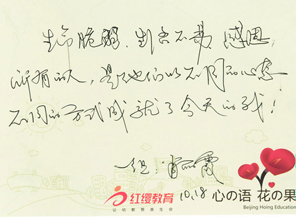 生命脆弱，割舍不易 感恩
所有的人，是他们以不同的心态
不同的方式成就了今天的我！
10.18
红缨教育
心の语 花の果
Beijing Hoing Education